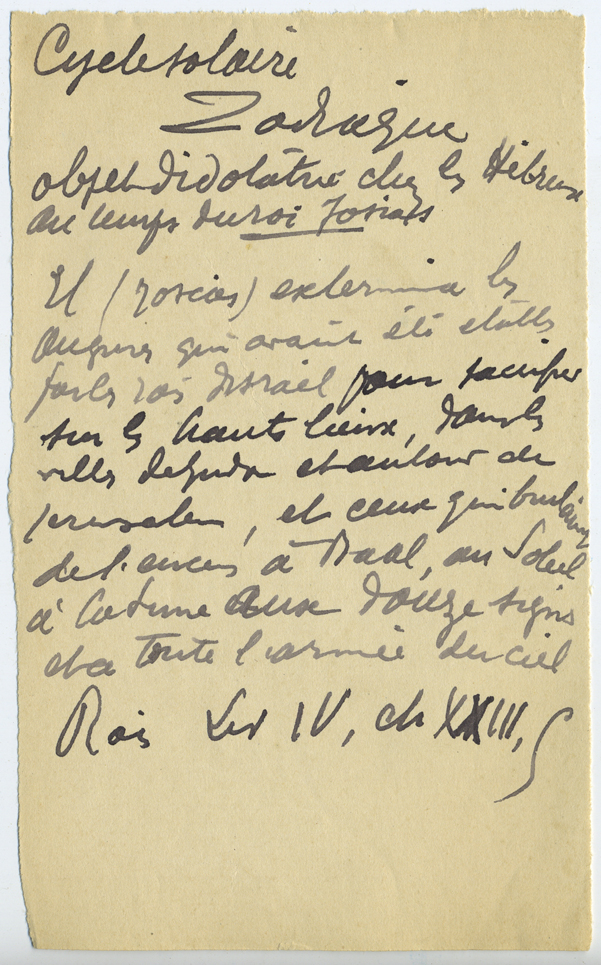 Cycle solaire
Zodiaque
objet d'idolâtrie chez les Hébreux
au temps du roi Josias
Il (Josias) extermina les
augures qui avait été établs
par les rois d'Israël pour sacrifier
sur les hauts lieux, dans les
villes de Juda et autour de
Jerusalem, et ceux qui brulaient
de l'encens à Baal, au Soleil
à la Lune aux douze signes
et à toute l'armée du ciel
Rois Liv IV, ch XXIII, 5